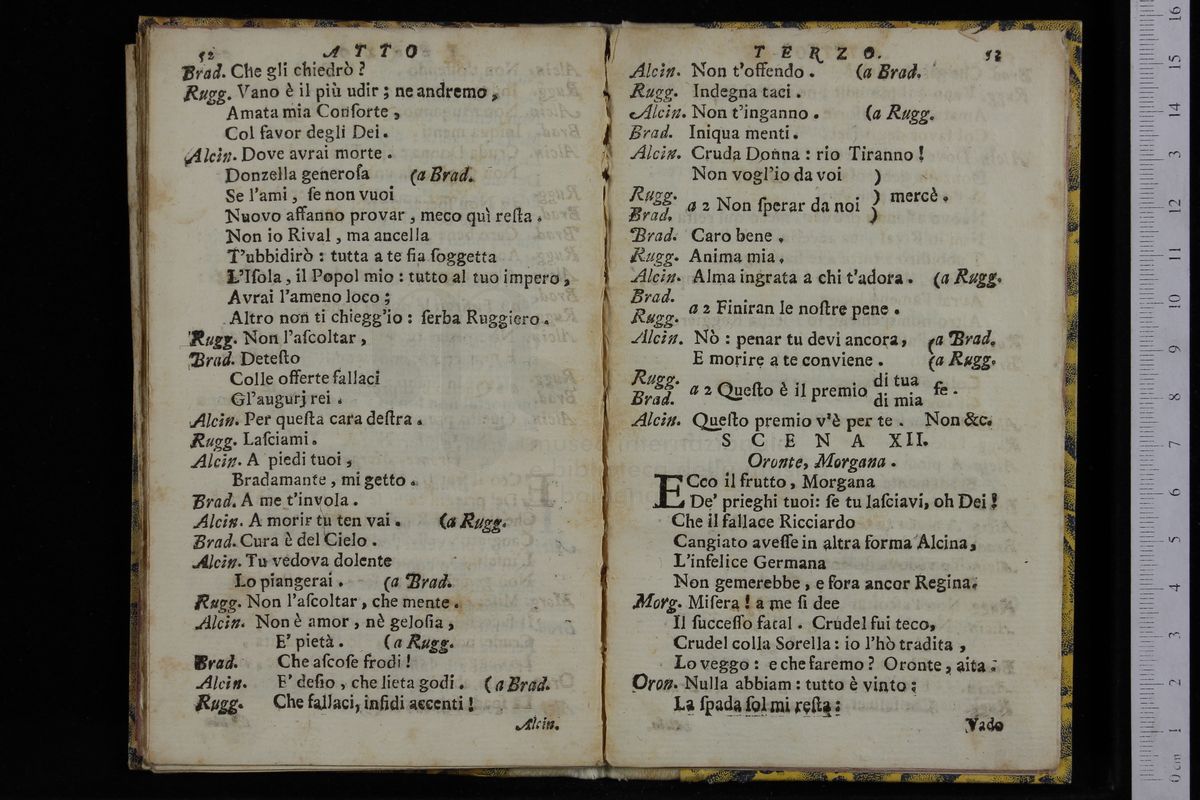 52 ATTO
Brad. Che gli chiedrò ?
Rugg. Vano è il più udir ; ne andremo ,
Amata mia Conſorte ,
Col favor degli Dei .
Alcin. Dove avrai morte .
Donzella generoſa (a Brad.
Se l'ami , ſe non vuoi
Nuovo affanno provar , meco quì reſta .
Non io Rival , ma ancella
T'ubbidirò : tutta a te ſia ſoggetta
L'Iſola , il Popol mio : tutto al tuo impero ,
Avrai l'ameno loco ;
Altro non ti chiegg'io : ſerba Ruggiero .
Rugg. Non l'aſcoltar ,
Brad. Deteſto
Colle offerte fallaci
Gl'augurj rei .
Alcin. Per queſta cara deſtra .
Rugg. Laſciami .
Alcin. A piedi tuoi ,
Bradamante , mi getto .
Brad. A me t'invola .
Alcin. A morir tu ten vai . (a Rugg.
Brad. Cura è del Cielo .
Alcin. Tu vedova dolente
Lo piangerai . (a Brad.
Rugg. Non l'aſcoltar , che mente .
Alcin. Non è amor , nè geloſia ,
E' pietà . (a Rugg.
Brad. Che aſcoſe frodi !
Alcin. E' deſio , che lieta godi . (a Brad.
Rugg. Che fallaci, inſidi accenti !
Alcin.
TERZO. 53
Alcin. Non t'offendo . (a Brad.
Rugg. Indegna taci .
Alcin. Non t'inganno . (a Rugg.
Brad. Iniqua menti .
Alcin. Cruda Donna : rio Tiranno !
Non vogl'io da voi )
Rugg. Brad. a 2 Non ſperar da noi ) ) mercè .
Brad. Caro bene .
Rugg. Anima mia .
Alcin. Alma ingrata a chi t'adora . (a Rugg.
Brad. Rugg. a 2 Finiran le noſtre pene .
Alcin. Nò : penar tu devi ancora, (a Brad.
E morire a te conviene . (a Rugg.
Rugg. Brad. a 2 Queſto è il premio di tua di mia fe .
Alcin. Queſto premio v'è per te . Non &c.
SCENA XII.
Oronte, Morgana .
ECco il frutto , Morgana
De' prieghi tuoi: ſe tu laſciavi, oh Dei !
Che il fallace Ricciardo
Cangiato aveſſe in altra forma Alcina,
L'infelice Germana
Non gemerebbe , e fora ancor Regina.
Morg. Miſera ! a me ſi dee
Il ſucceſſo fatal . Crudel fui teco,
Crudel colla Sorella : io l'hò tradita ,
Lo veggo : e che faremo ? Oronte , aita .
Oron. Nulla abbiam : tutto è vinto ;
La ſpada ſol mi reſta ;
Vado
0 cm 1 2 3 4 5 6 7 8 9 10 11 12 13 14 15 16